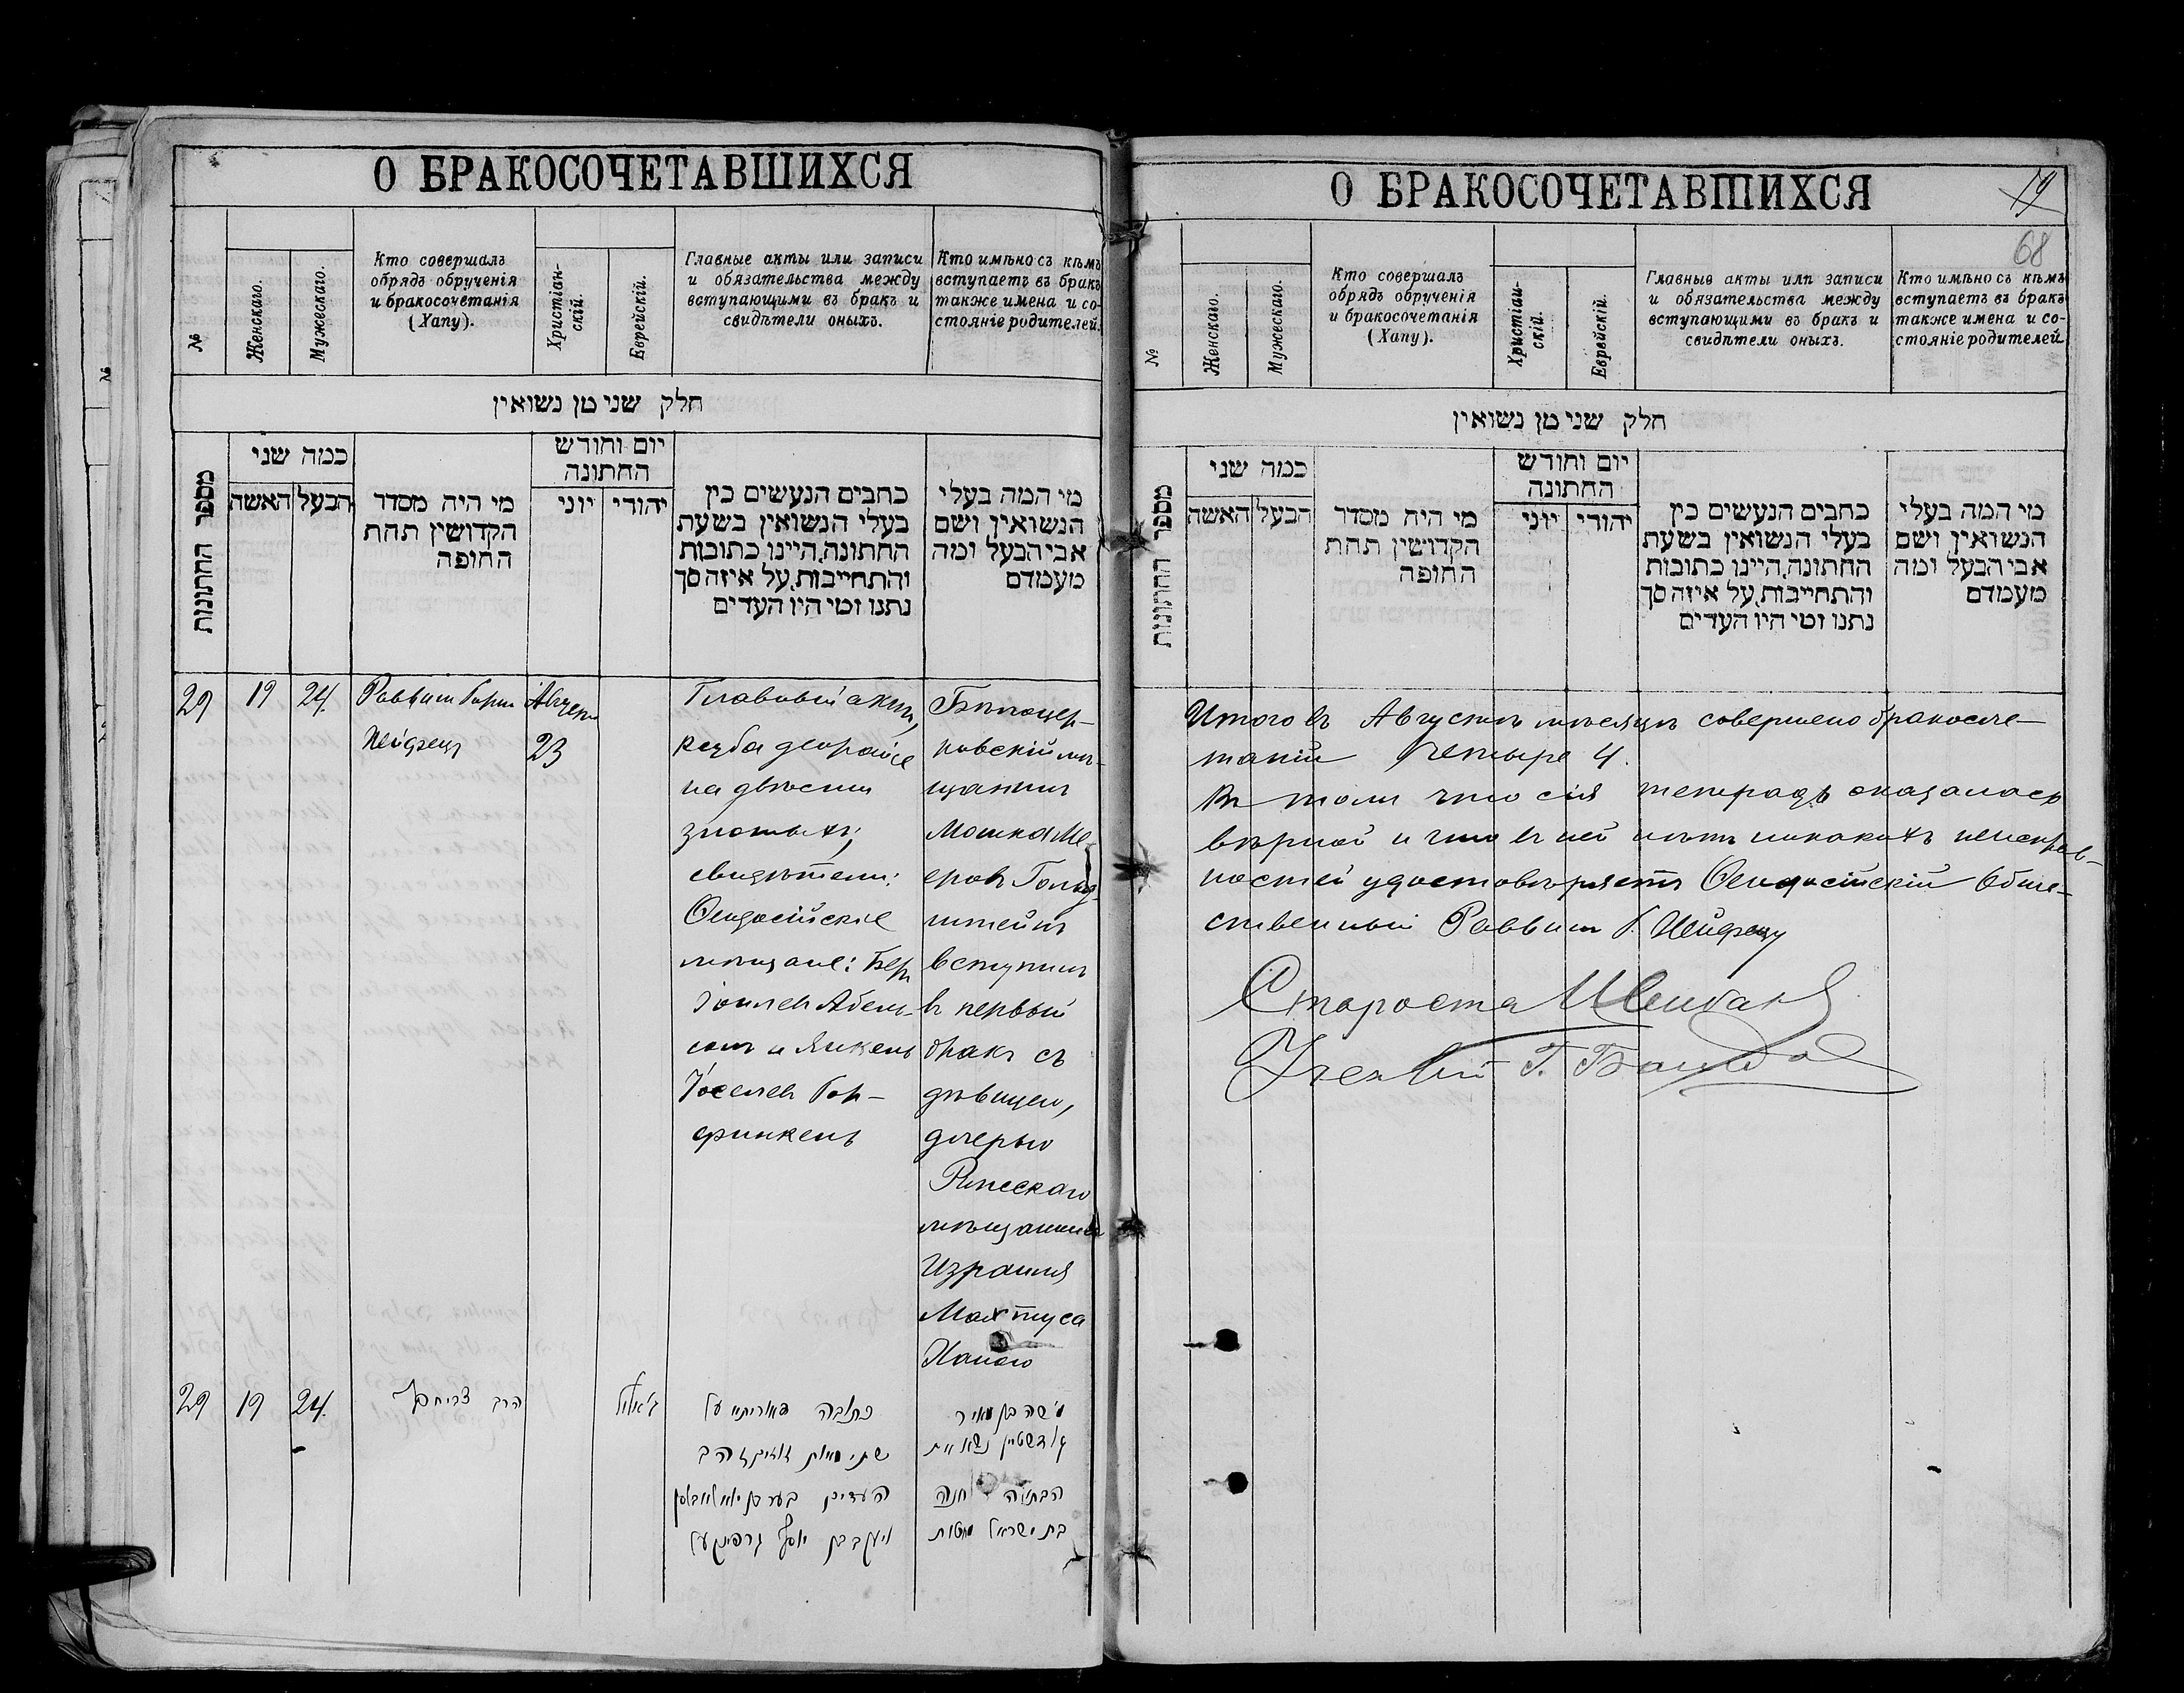 О БРАКОСОЧЕТАВШИХСЯ
№
Женскаго.
Мужескаго.
Кто совершалъ
обрядъ обрученія
и бракосочетанія
(Хапу).
Христіан-
скій.
Еврейскій.
Главные акты или записи
и обязательства между
вступающими въ бракъ и
свидѣтели оныхъ.
Кто имѣно съ кѣмъ
вступаетъ въ бракъ
также имена и со-
стояніе родителей.
חלק שני מן נשואין
מספר החתונות
כמה שני
האשה
הבעל
מי היה מסדר
הקדושין תחת
החופה
יום וחודש
החתונה
יוני
יהודי
כתבים הנעשים בין
בעלי הנשואין בשעת
החתונה, היינו כתובות
והתחייבות, על איזה סך
נתנו ומי היו העדים
מי המה בעלי
הנשואין ושם
אבי הבעל ומה
מעמדם
29
19
24.
Раввинъ
Августъ
23
Главный актъ,
кецба деорайсе
на двѣсти
злотыхъ;
свидѣтели:
Ѳеодосійскіе
мѣщане: Беръ
Іоилевъ Абель-
сонъ и Янкель
Іоселевъ Гор-
финкель
Бѣлоцер-
ковскій мѣ-
щанинъ
Мошка Ме-
еровъ Гольд-
штейнъ
вступилъ
въ первый
бракъ съ
дѣвицею,
дочерью
Рижскаго
мѣщанина
Израиля
Махтуса
Ханою
29
19
24.
הרב
כתובה דאוריתא על
שתי מאות זהב
העדים בער בן
ויעקב בן יוסף גרפינקעל
משה בן מאיר
גאלדשטיין נשא את
הבתולה חנה
בת ישראל מחטות
О БРАКОСОЧЕТАВШИХСЯ
19
68
№
Женскаго.
Мужескаго.
Кто совершалъ
обрядъ обрученія
и бракосочетанія
(Хапу).
Христіан-
скій.
Еврейскій.
Главные акты или записи
и обязательства между
вступающими въ бракъ и
свидѣтели оныхъ.
Кто имѣно съ кѣмъ
вступаетъ въ бракъ
также имена и со-
стояніе родителей
חלק שני מן נשואין
מספר החתונות
כמה שני
האשה
הבעל
מי היה מסדר
הקדושין תחת
החופה
יום וחודש
החתונה
יוני
יהודי
כתבים הנעשים בין
בעלי הנשואין בשעת
החתונה, היינו כתובות
והתחייבות, על איזה סך
נתנו ומי היו העדים
מי המה בעלי
הנשואין ושם
אבי הבעל ומה
מעמדם
Итого въ Августѣ мѣсяцѣ совершено бракосоче-
таній четыре 4.
Въ томъ что сія тетрадь оказалась
вѣрной и что въ ней нѣтъ никакихъ неисправ-
ностей удостовѣряетъ Ѳеодосійскій Обще-
ственный Раввинъ
Староста
Ученый Г.